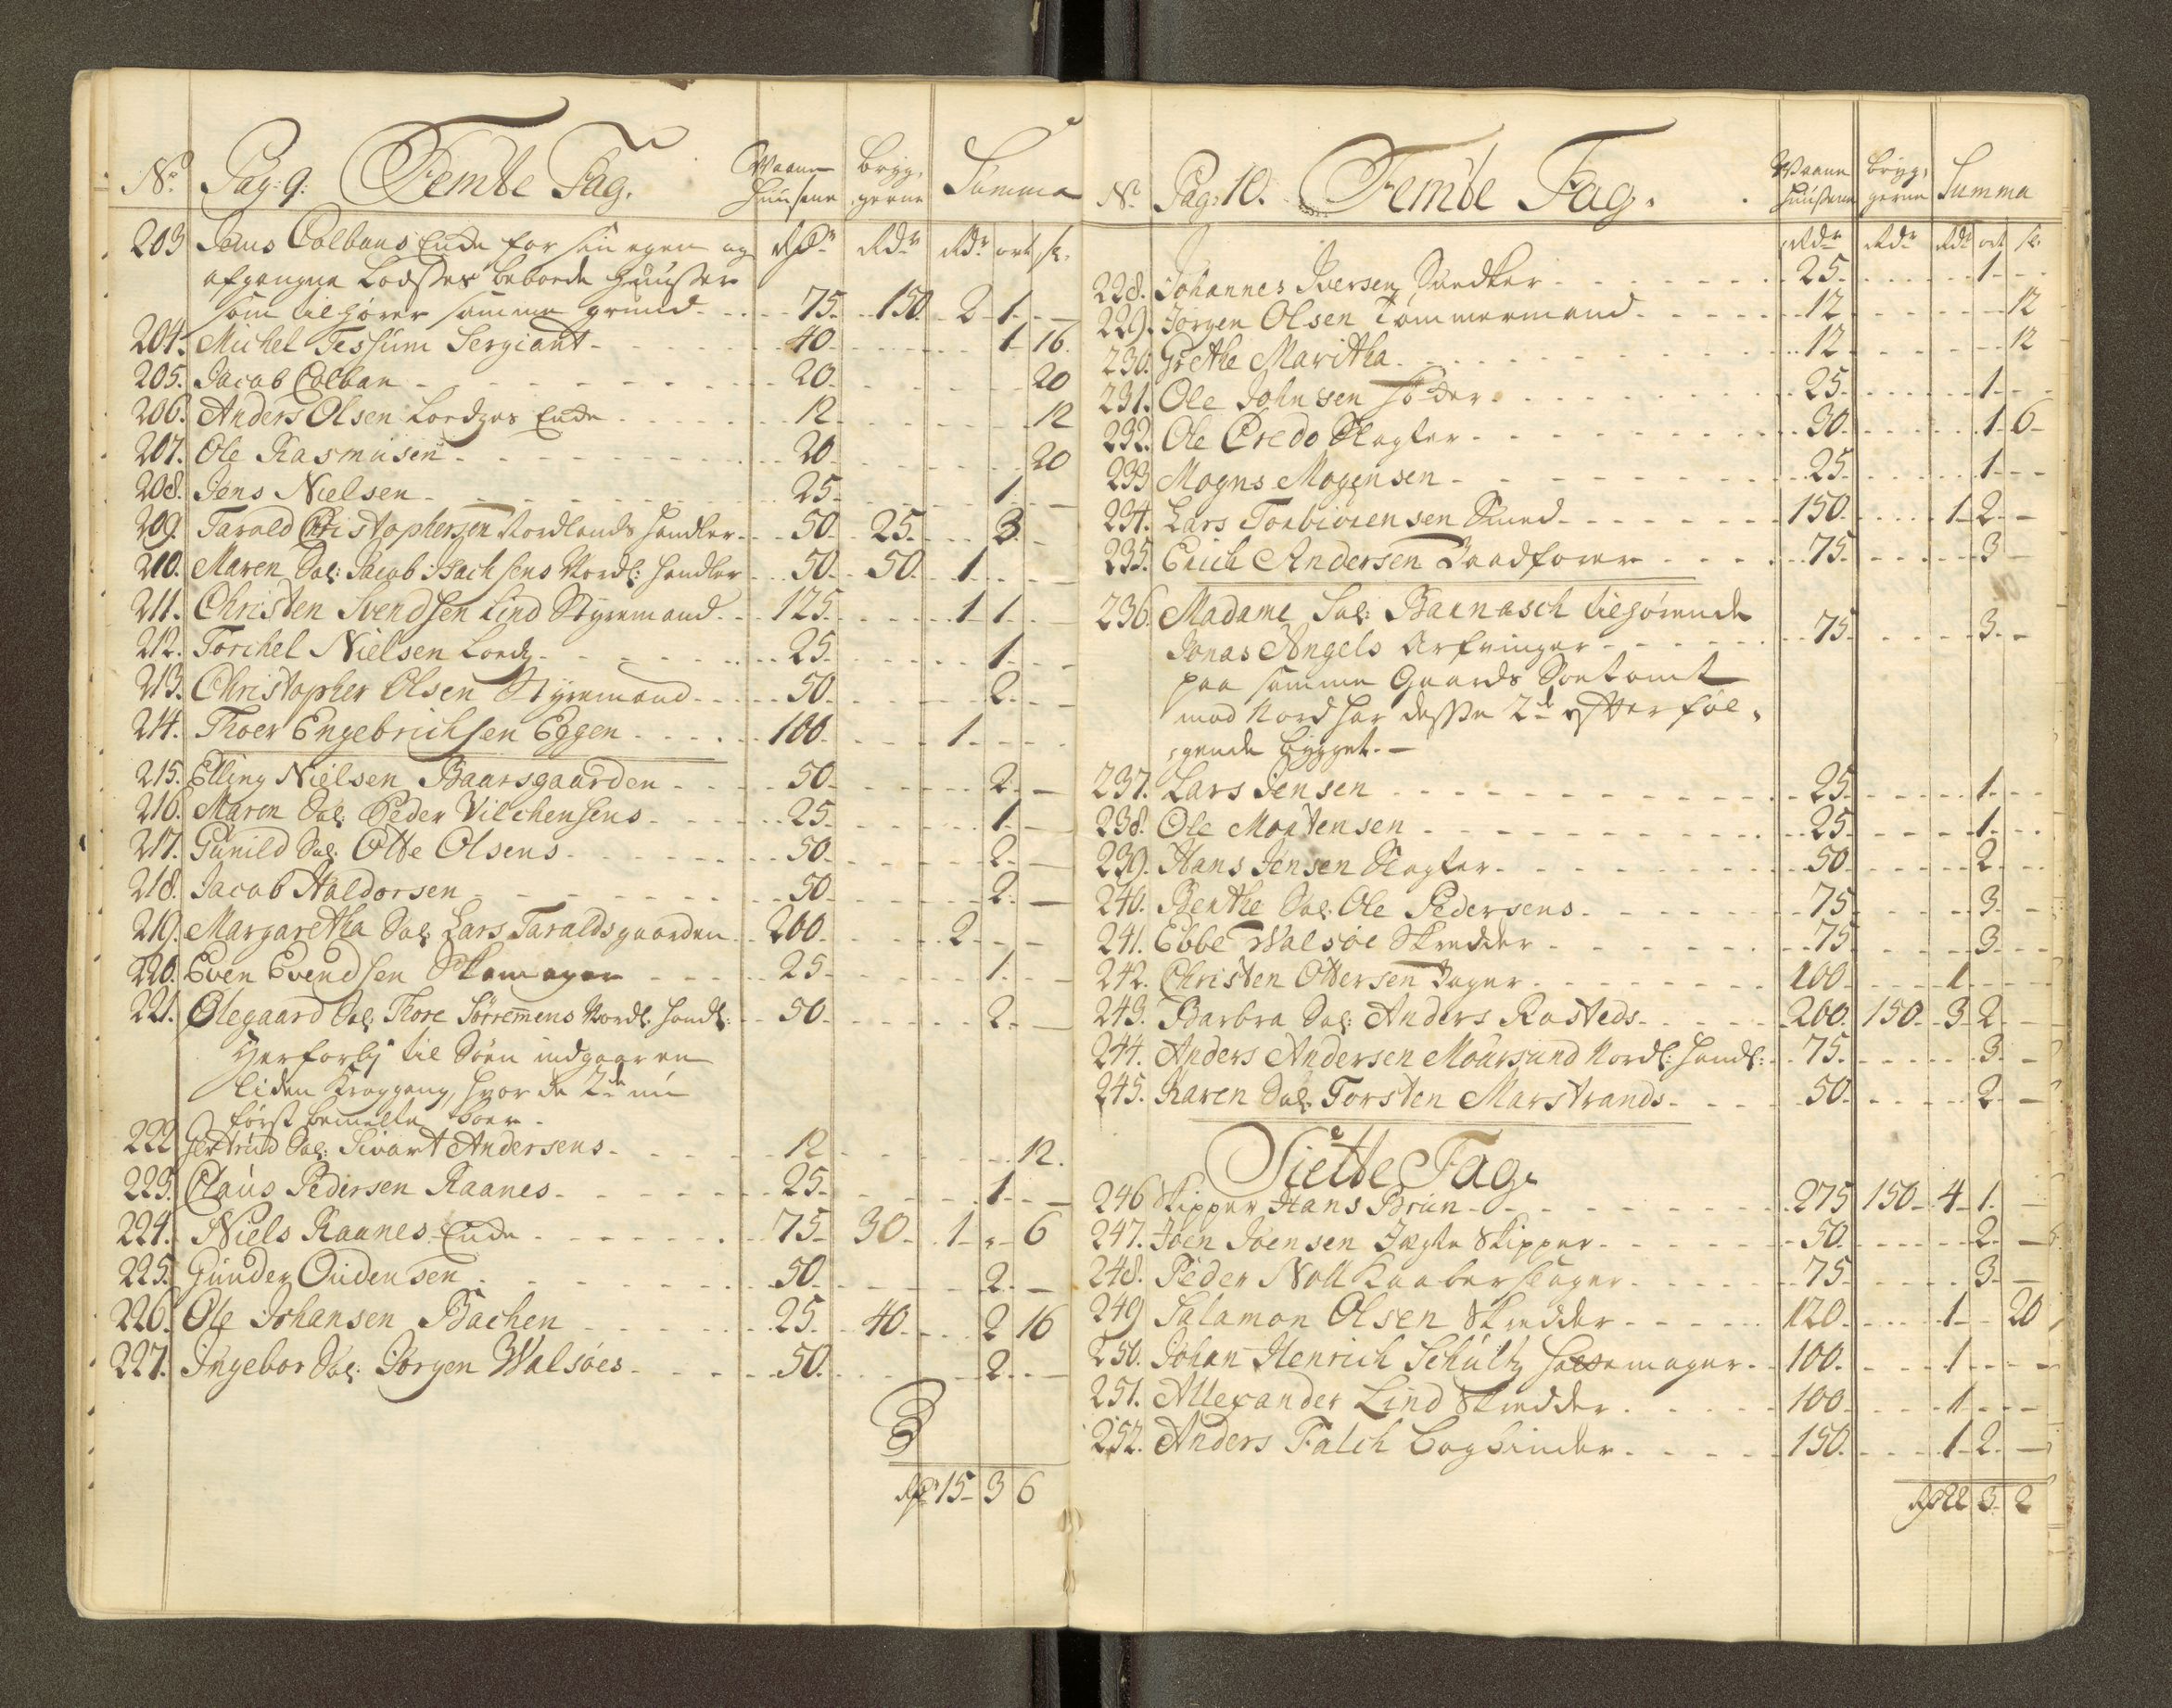 No. Pag: 9: Femte Fag. Waane Huusene Bryg, gerne Summa
203 Jens Colbans Enche for sin egen og Rdr Rdr Rdr ort sk.
afgangne Lodsses beboede Huusser
som tilhører samme grund 75. 150. 2 1
204. Michel Tessúm Sergiant 40 1 16.
205. Jacob Colban 20. 20
206. Anders Olsen Lordges Enche 12 12
207. Ole Rasmusen 20 20
208. Jens Nielsen 25 1
209. Tarald Christophersen Nordlands Handler 50. 25. 3
210. Maren Sal: Jacob Isachsens Nordl: Handler 50. 50. 1
211. Christen Svendsen Lind Styremand 125. 1 1
212. Torchel Nielsen Lordg 25 1
213. Christopher Olsen Styremand 50. 2
214. Thoer Engebrichsen Eggen 100. 1
215. Elling Nielsen Baarsgaarden 50. 2
216. Maren Sal: Peder Vilchensens 25. 1
217. Gunild Sal: Otte Olsens 50. 2
218. Jacob Haldorsen 50. 2
219. Margaretha Sal: Lars Taraldsgaarden 200. 2
220. Even Evendsen Skomager 25 1
221. Olegaard Sal: Thore Sörremens Nordl. Handl: 50. 2
Herforbj til Söen indgaar en
liden Kroggang, hvor de 2de nú
först bemelte boer.
222 Gertrud Sal: Sivart Andersens 12 12.
223. Claús Pedersen Raanes 25 1
224. Niels Raanes Enche 75 30 1 6
225. Gunder Oudensen 50. 2
226. Ole Johansen Bachen 25. 40. 2 16
227. Ingebor Sal: Jörgen Walsöes 50. 2
Rdr 15 3 6
No. Pag: 10. Femte Fag. Waane Huusene Bryg, gerne Summa
Rdr Rdr Rdr ort sk.
228. Johannes Iversen Snedker 25. 1
229. Jörgen Olsen Tömmermand 12 12
230. Grethe Maritha 12 12
231. Ole Johnsen 25. 1
232. Ole Credo Slagter 30. 1 6
233 Mogns Mogensen 25. 1
234. Lars Torbiörensen Smed 150. 1 2
235. Erich Andersen 75. 3
236. Madame Sal: Barnasch tilhörende
Jonas Angels Arfvinger 75 3
paa samme Gaards Toetomt
mod Nord har desse 2de efterföl,
gende bygget.
237. Lars Jensen 25. 1
238. Ole Mortensen 25. 1
239. Hans Jensen Slagter 50 2
240. Benthe Sal. Ole Pedersens 75 3
241. Ebbe Walsöe Skredder 75 3
242. Christen Ottersen Bager 100 1
243. Barbra Sal: Anders Rosteds 200. 150 3 2
244. Anders Andersen Moursund Nordl: Handl: 75 3
245. Karen Sal: Torsten Marstrands 50. 2
Siette Fag.
246 Skipper Hans Brún 275 150 4 1
247. Joen Joensen Jægte Skipper 50. 2
248. Peder Noll Kaaberslager 75 3
249 Salamon Olsen Skredder 120. 1 20
250. Johan Henrich Schúltz Hattemager 100. 1
251. Allexander Lind Skredder 100 1
252. Anders Falch Bogbinder 150. 1 2
Rdr 22 3 2